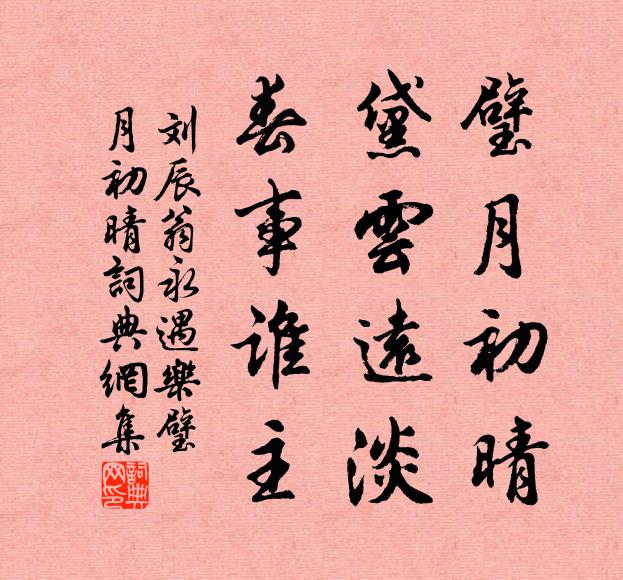 璧月初晴
黛雲遠淡
春事誰主
刘辰翁永遇樂璧
月初晴詞典網集
詞典网印